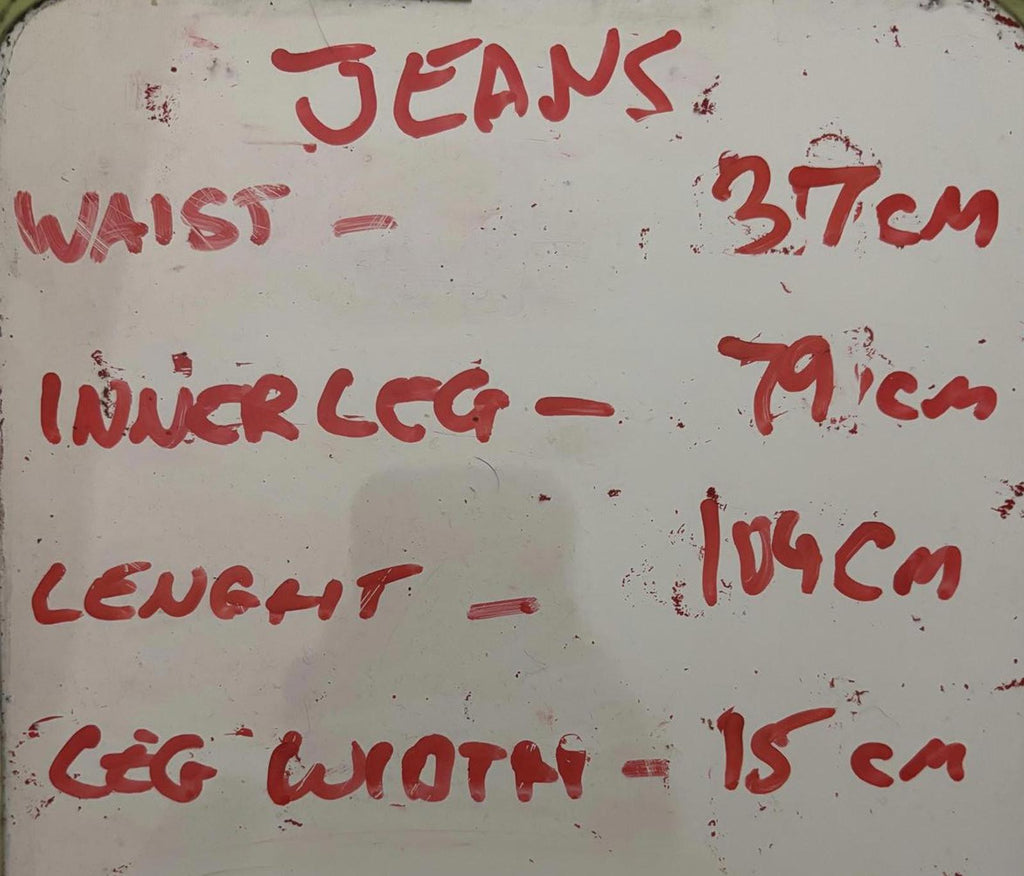 JEANS
WAIST - 37cm
INNER LEG - 79cm
LENGHT - 104cm
LEG WIDTH - 15cm